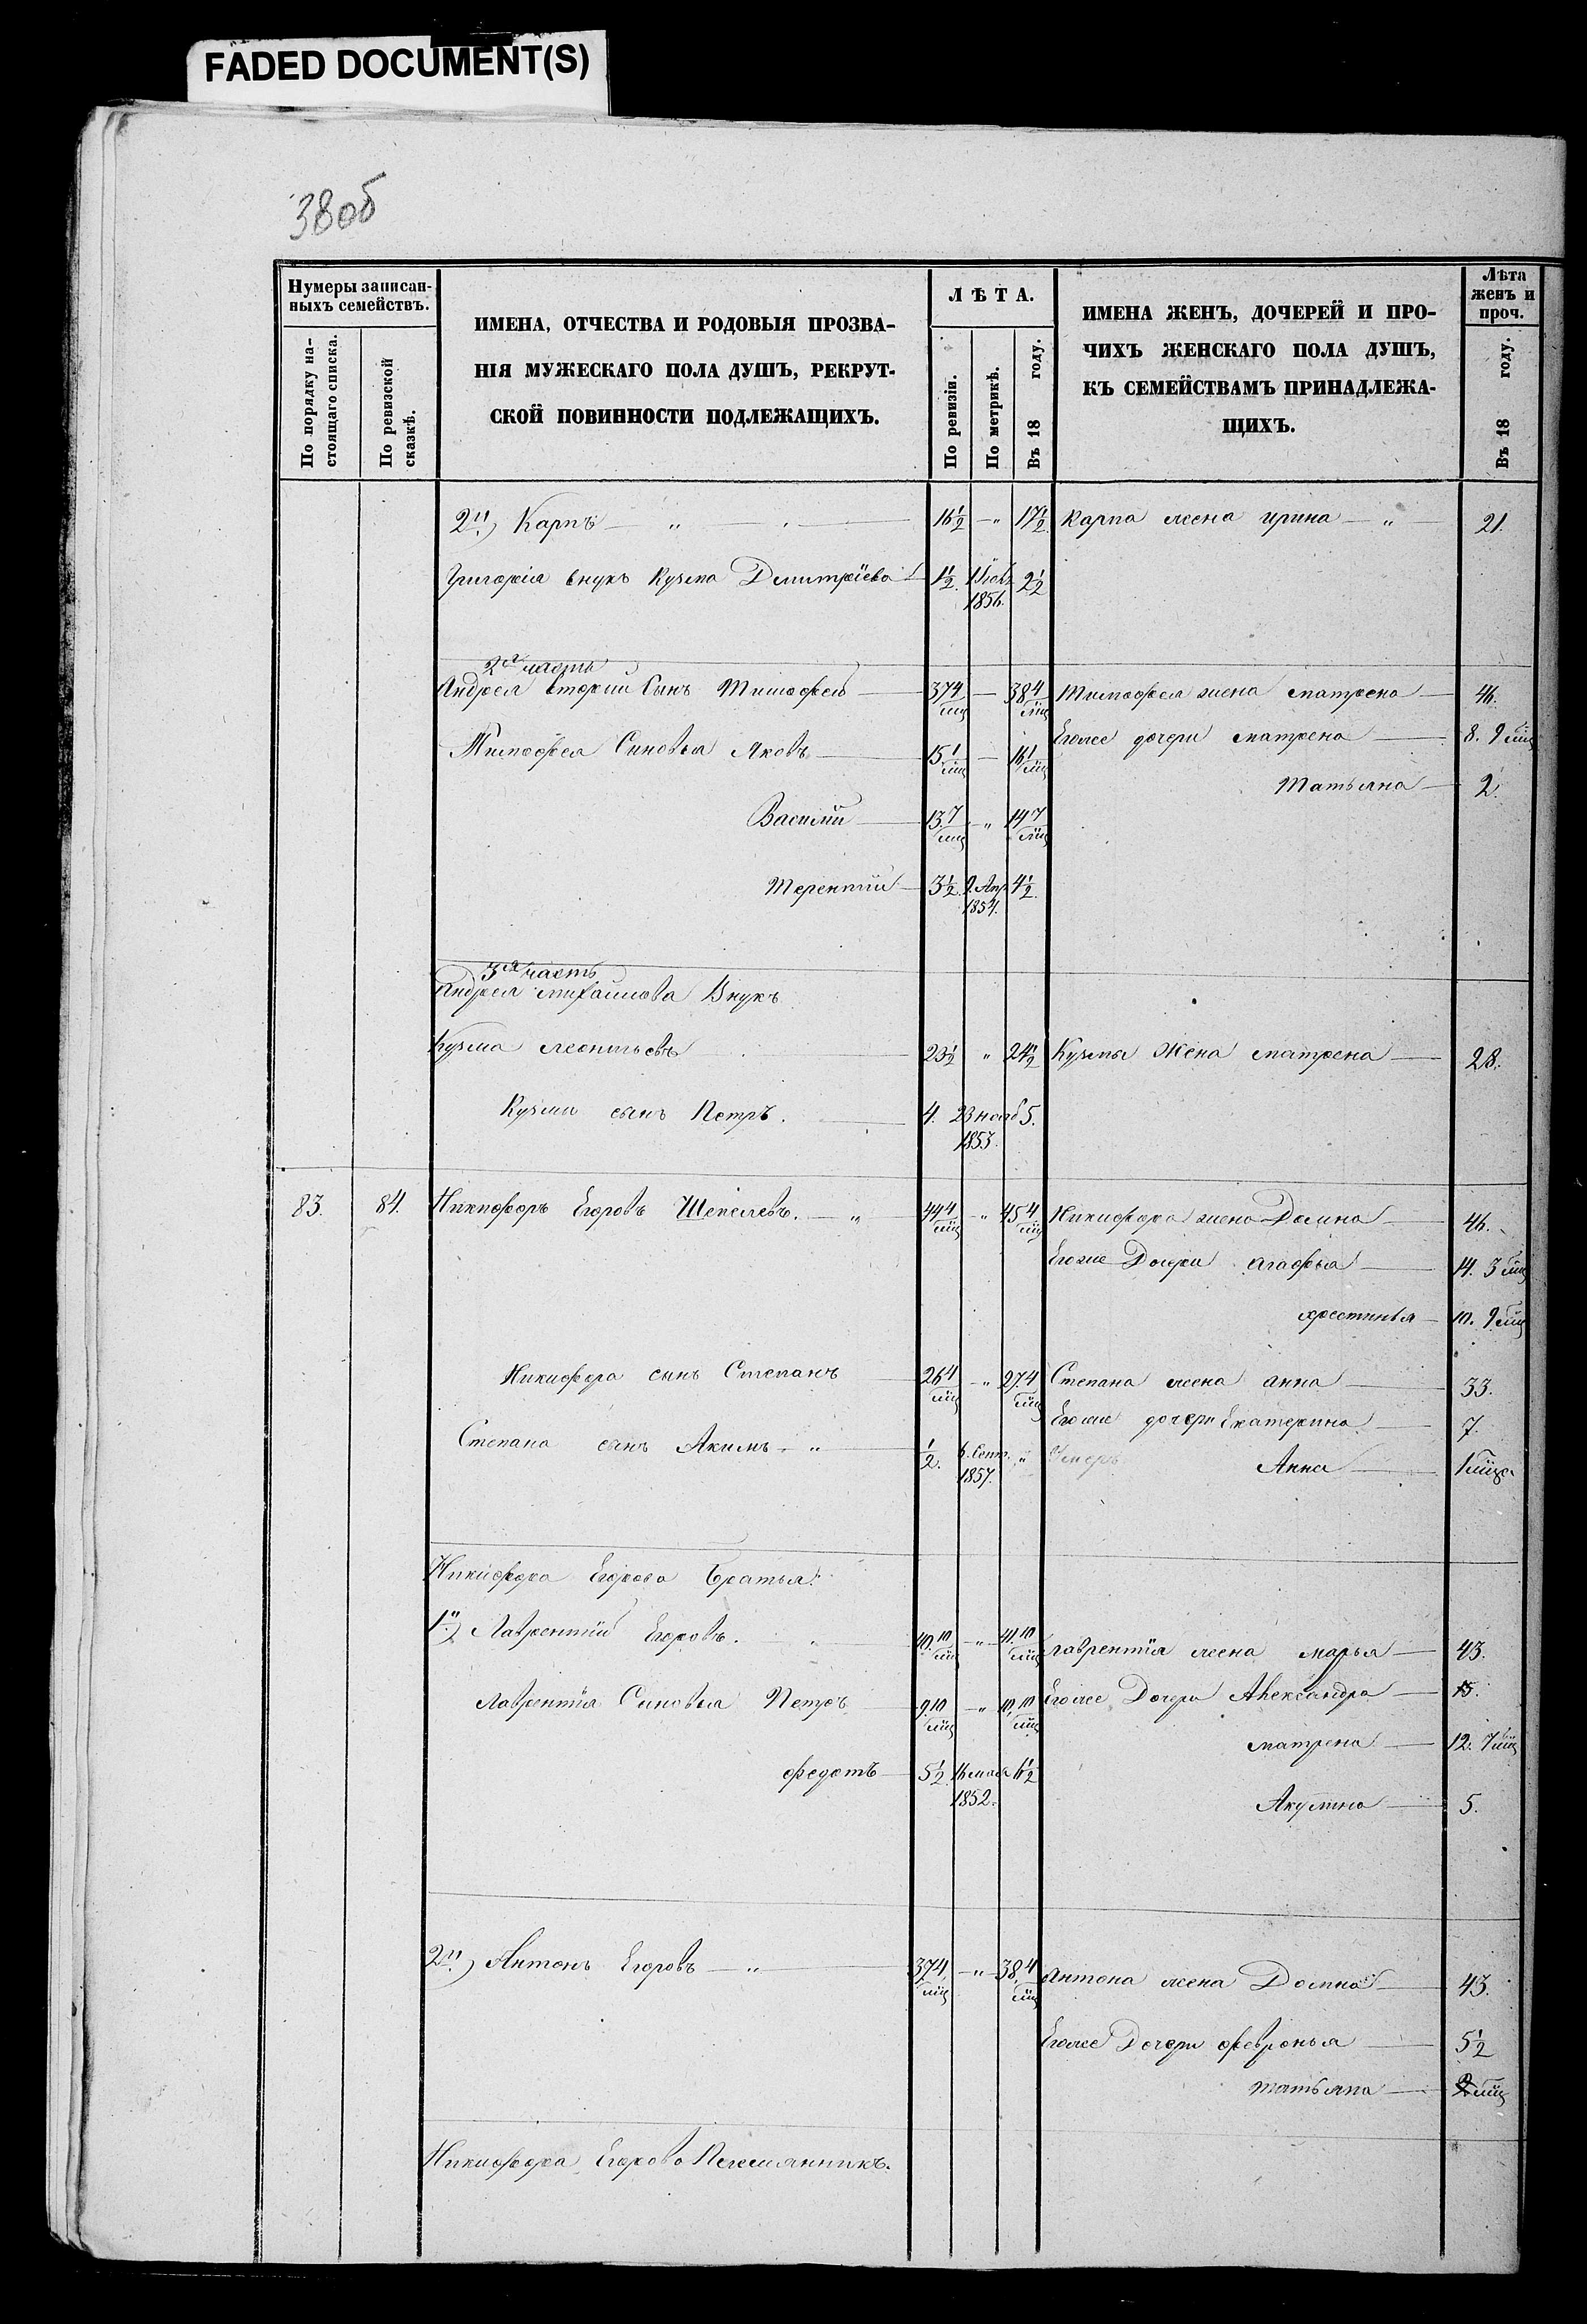 FADED DOCUMENT(S)
38об
Нумеры записан-
ныхъ семействъ.
По порядку на-
стоящаго списка.
По ревизской
сказкѣ.
ИМЕНА, ОТЧЕСТВА И РОДОВЫЯ ПРОЗВА-
НІЯ МУЖЕСКАГО ПОЛА ДУШЪ, РЕКРУТ-
СКОЙ ПОВИННОСТИ ПОДЛЕЖАЩИХЪ.
ЛѢТА.
По ревизіи.
По метрикѣ.
Въ 18 году.
ИМЕНА ЖЕНЪ, ДОЧЕРЕЙ И ПРО-
ЧИХЪ ЖЕНСКАГО ПОЛА ДУШЪ,
КЪ СЕМЕЙСТВАМЪ ПРИНАДЛЕЖА-
ЩИХЪ.
Лѣта
женъ и
проч.
Въ 18 году.
2й) Карпъ — „ — 16½ — „ 17½ Карпа жена Ирина — „ 21.
Григорія внукъ Кузма Дмитріевъ 1½. 1856. 2½
2я часть
Андрея вторый Сынъ Тимофей — 37 4/мц — 38 4/мц Тимофея жена Матрена — 46.
Тимофея Сыновья Яковъ — 15 1/мц — 16 1/мц Егоже дочери Матрена — 8. 9 мц
Татьяна — 2.
Василій — 13 7/мц — „ 14 7/мц
Терентій — 3½. 9. Апр 1854. 4½.
3я часть
Андрея Михайлова Внукъ
Кузма Леонтьевъ — 23½ „ 24½ Кузмы Жена Матрена — 28.
Кузмы сынъ Петръ. — 4. 23 нояб 1853. 5.
83. 84. Никифоръ Егоровъ Шепелевъ. — „ 44 4/мц — „ 45 4/мц Никифора жена Домна — 46.
Егоже Дочери Агафья — 14. 3 мц
Хрестинья — 10. 9 мц
Никифора сынъ Степанъ — 26 4/мц — „ 27 4/мц Степана жена Анна — 33.
Егоже дочери Екатерина — 7.
Степана сынъ Акимъ — „ ½. 6. Сент. 1857. „ умеръ Анна — 1 мца
Никифора Егорова Братья:
1й) Лаврентій Егоровъ. „ 40. 10/мц — „ 41. 10/мц Лаврентія жена Марья — 43.
Лаврентія Сыновья Петръ — 9. 10/мц — „ 10. 10/мц Егоже Дочери Александра — 15.
Матрена — 12. 7 мц
Федотъ — 5½. 16 мая 1852. 6½
Акулина — 5.
2й) Антонъ Егоровъ — „ — 37 4/мц — „ 38. 4/мц Антона жена Домна — 43.
Егоже Дочери Февронья — 5½
Татьяна — 2 мц
Никифора Егорова Племянникъ.